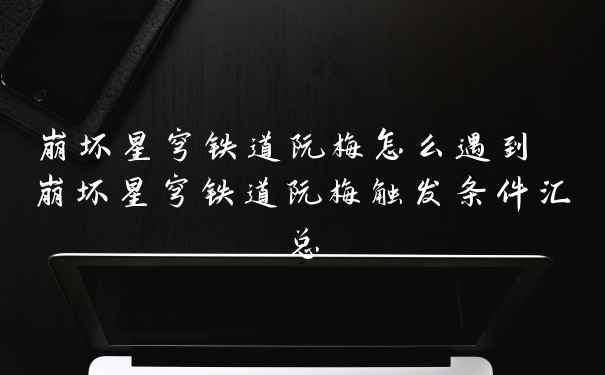 崩坏星穹铁道阮梅怎么遇到
崩坏星穹铁道阮梅触发条件汇
总